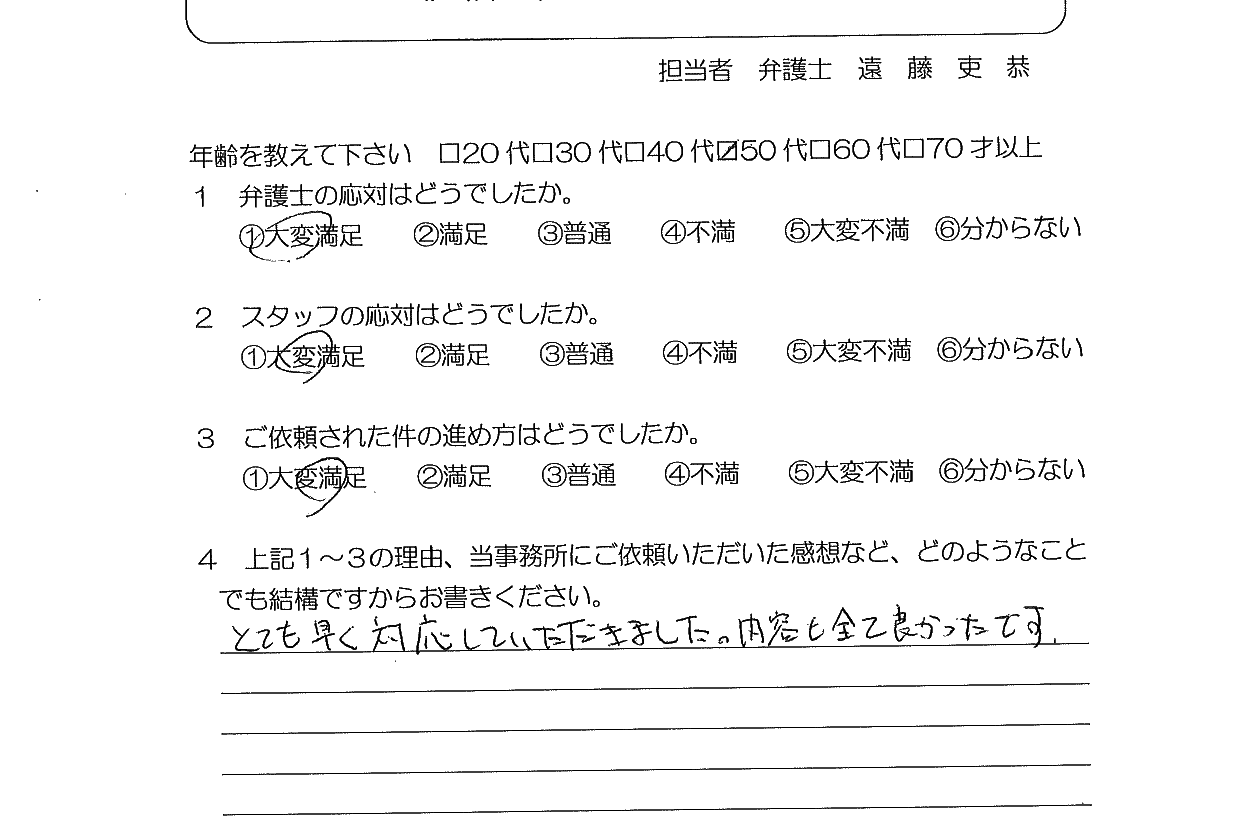 担当者 弁護士 遠 藤 吏 恭
年齢を教えて下さい □20代□30代□40代☑50代□60代□70才以上
1 弁護士の応対はどうでしたか。
①大変満足 ②満足 ③普通 ④不満 ⑤大変不満 ⑥分からない
2 スタッフの応対はどうでしたか。
①大変満足 ②満足 ③普通 ④不満 ⑤大変不満 ⑥分からない
3 ご依頼された件の進め方はどうでしたか。
①大変満足 ②満足 ③普通 ④不満 ⑤大変不満 ⑥分からない
4 上記1~3の理由、当事務所にご依頼いただいた感想など、どのようなこと
でも結構ですからお書きください。
とても早く対応していただきました。内容も全て良かったです.